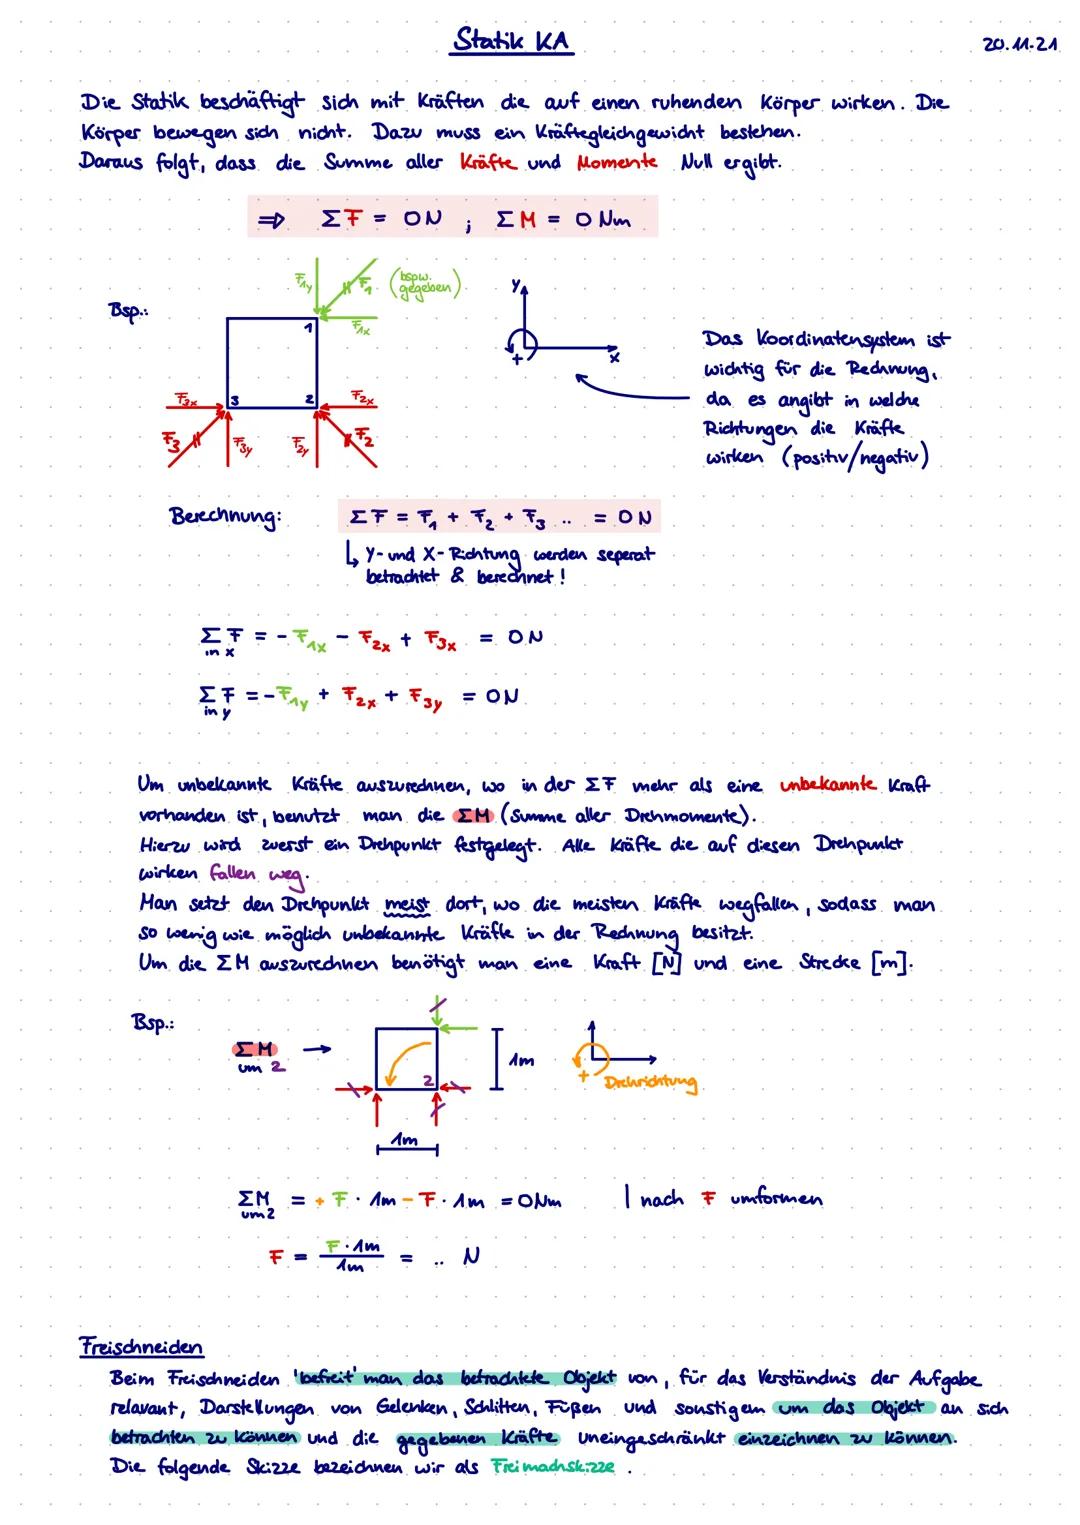 Statik KA
20.11.21
Die Statik beschäftigt sich mit Kräften die auf einen ruhenden Körper wirken. Die
Körper bewegen sich nicht. Dazu muss ein Kräftegleichgewicht bestehen.
Daraus folgt, dass die Summe aller Kräfte und Momente Null ergibt.
⇒ ΣF = 0N ; ΣM = 0 Nm
Bsp.:
F1y F1 (bspw. gegeben)
F1x
1
3 2
F3x F2x
F3 F3y F2y F2
y
x
+
Das Koordinatensystem ist
wichtig für die Rechnung,
da es angibt in welche
Richtungen die Kräfte
wirken (positiv/negativ)
Berechnung: ΣF = F1 + F2 + F3 .. = 0N
↳ Y-und X-Richtung werden seperat
betrachtet & berechnet!
ΣF = - F1x - F2x + F3x = 0N
in x
ΣF = - F1y + F2x + F3y = 0N
in y
Um unbekannte Kräfte auszurechnen, wo in der ΣF mehr als eine unbekannte Kraft
vorhanden ist, benutzt man die ΣM (Summe aller Drehmomente).
Hierzu wird zuerst ein Drehpunkt festgelegt. Alle Kräfte die auf diesen Drehpunkt
wirken fallen weg.
Man setzt den Drehpunkt meist dort, wo die meisten Kräfte wegfallen, sodass man
so wenig wie möglich unbekannte Kräfte in der Rechnung besitzt.
Um die ΣM auszurechnen benötigt man eine Kraft [N] und eine Strecke [m].
Bsp.:
ΣM →
um 2
2
1m
1m
+ Drehrichtung
ΣM = + F · 1m - F · 1m = 0Nm | nach F umformen
um 2
F = F · 1m / 1m = .. N
Freischneiden
Beim Freischneiden 'befreit' man das betrachtete Objekt von, für das Verständnis der Aufgabe
relavant, Darstellungen von Gelenken, Schlitten, Füßen und sonstigem um das Objekt an sich
betrachten zu können und die gegebenen Kräfte uneingeschränkt einzeichnen zu können.
Die folgende Skizze bezeichnen wir als Freimachskizze.